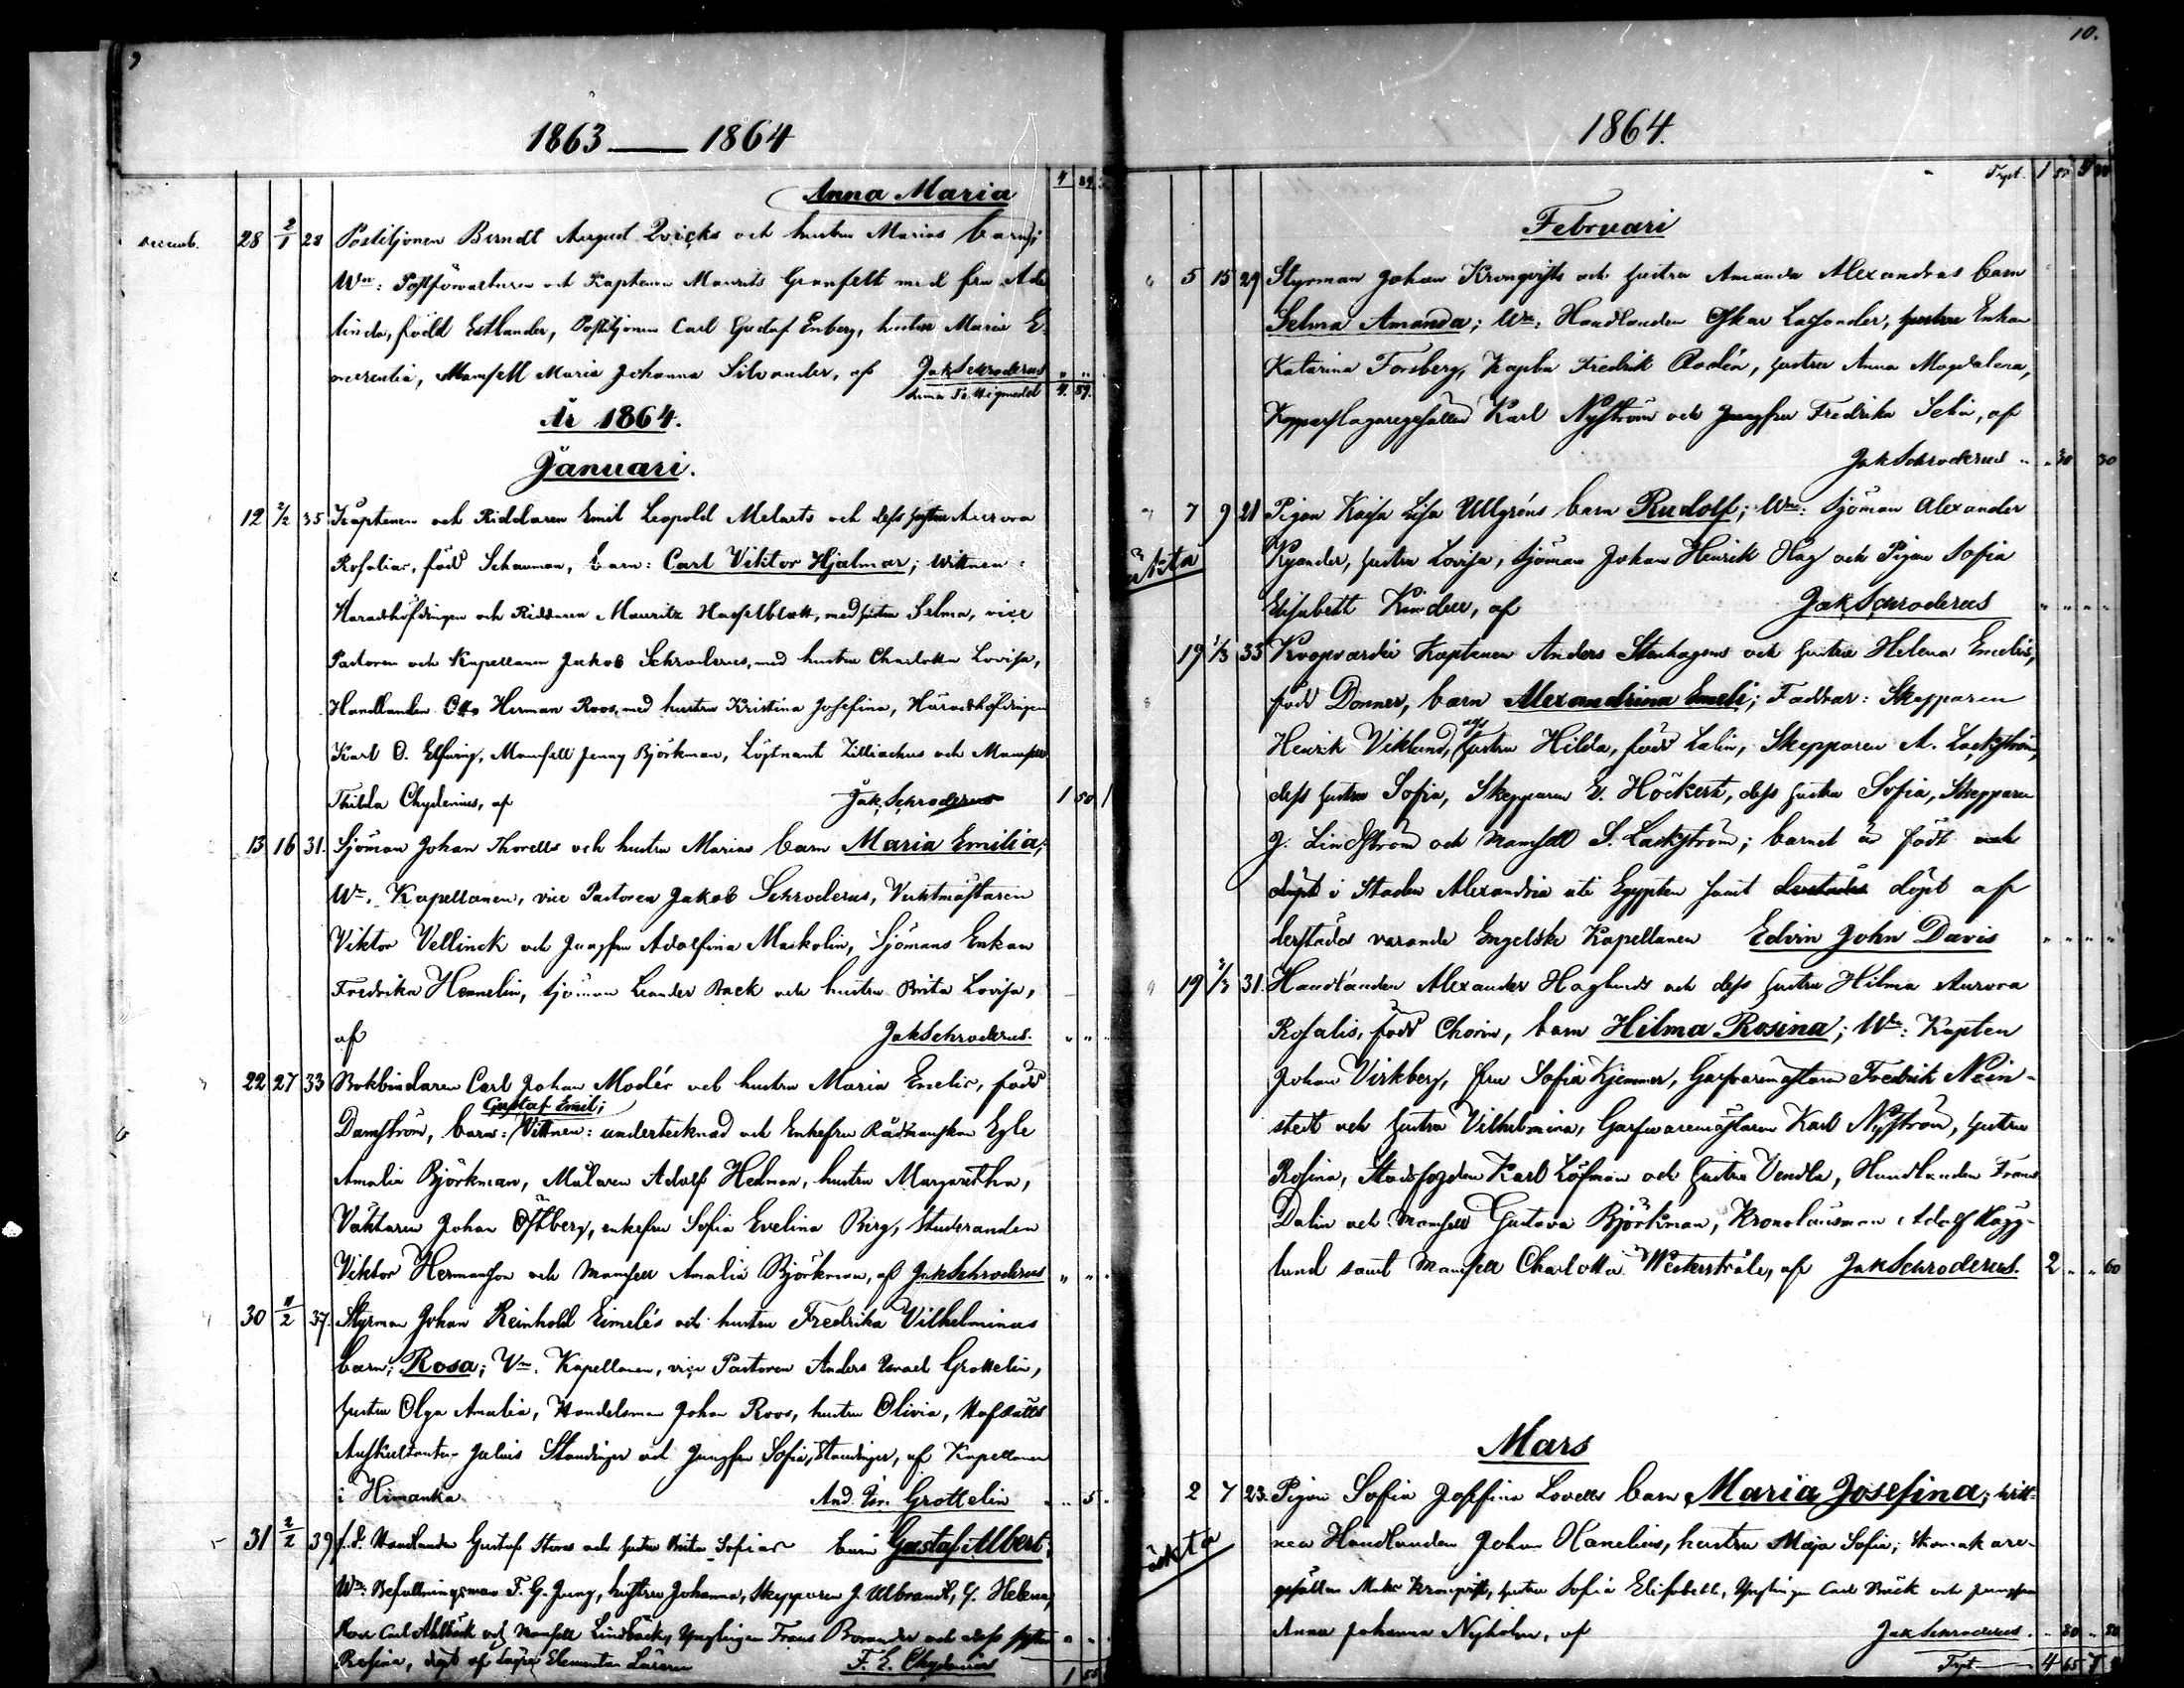 9
1863 — 1864
Anna Maria
Decemb. 28 2/1 28 Postiljonen Berndt August Qvicks och hustru Marias barn;
Wn: Postförvaltaren och Kaptenen Maurits Granfelt med fru Ade
linda, född Estlander, Postiljonen Carl Gustaf Enberg, hustru Maria E-
merentia, Mamsell Maria Johanna Silvander, af Jak Schroderus
År 1864.
Januari.
12 2/2 35 Kaptenen och Riddaren Emil Leopold Melarts och dess hustru Aurora
Rosalias, född Schauman, barn: Carl Viktor Hjalmar; Wittnen:
Häradshöfdingen och Riddaren Mauritz Hasselblatt, med hustru Selma, vice
Pastoren och Kapellanen Jakob Schroderus, med hustru Charlotta Lovisa,
Handlanden Otto Herman Roos, med hustru Kristina Josefina, Häradshöfdingen
Karl O. Elfving, Mamsell Jenny Björkman, Löjtnant Zilliachus och Mamsell
Thilda Chydenius, af Jak. Schroderus 1 50 1
13 16 31. Sjöman Johan Thorells och hustru Marias barn Maria Emilia;
Wn. Kapellanen, vice Pastoren Jakob Schroderus, Vaktmästaren
Viktor Vellinck och Jungfru Adolfina Maskolin, Sjömans Enkan
Fredrika Hennelin, Sjöman Leander Back och hustru Brita Lovisa,
af Jak Schroderus.
22 27 33 Bokbindaren Carl Johan Modér och hustru Maria Emelie, född
Gustaf Emil;
Damström, barn: Vittnen: undertecknad och Enkefru Rådmanskan Egle
Amalia Björkman, Målaren Adolf Hedman, hustru Margaretha,
Väktaren Johan Östberg, enkefru Sofia Evelina Berg, Studeranden
Viktor Hermanson och Mamsell Amalia Björkman, af Jak Schroderus
30 11/2 37. Styrman Johan Reinhold Eimelés och hustru Fredrika Vilhelminas
barn; Rosa; Vn. Kapellanen, vice Pastoren Anders Israel Grottelin,
hustru Olga Amalia, Handelsman Johan Roos, hustru Olivia, Hofrätts
Auskultanten Julius Standinger och Jungfru Sofia Standinger, af Kapellanen
i Himanka And. Isr. Grottelin 5
31 2/2 39 f.d. Handlanden Gustaf och hustru Brita Sofias barn Gustaf Albert;
Wn: Befallningsman F. G. Jung, hustru Johanna, Skepparen J. Ulbrandt, H. Helena,
Herr Carl Ahlbäck och Mamsell Lindbäck, Ynglingen Frans och dess syster
Rosina, döpt af Elementar Läraren F. E. Chydenius
1 55
10.
1864.
Trpt. 1
Februari
5 15 29 Styrman Johan Kronqvists och hustru Amanda Alexandras barn
Selma Amanda; Wn: Handlanden Oskar Lassander, hustru Enkan
Katarina Forsberg, Fredrik Rodén, hustru Anna Magdalena,
Kopparslagaregesällen Karl Nyström och Jungfru Fredrika Selin, af
Jak Schroderus 30 30
7 9 21 Pigan Kaisa Lisa Ullgréns barn Rudolf; Wn: Sjöman Alexander
Kyander, hustru Lovisa, Sjöman Johan Henrik Hag och Pigan Sofia
Elisabeth Kinder, af Jak Schroderus
19 1/3 33 Koopvaerdie Kaptenen Anders Stenhagens och hustru Helena Emelies,
född Donner, barn Alexandrina Emeli; Faddrar: Skepparen
Henrik Viklund, dess hustru Hilda, född Lalin, Skepparen A. Lackström,
dess hustru Sofia, Skepparen E. Höckert, dess hustru Sofia, Skepparen
J. Lindström och Mamsell S. Lackström; barnet är födt och
döpt i Staden Alexandria uti Egypten samt döpt af
derstädes varande Engelske Kapellanen Edvin John Davis
19 1/3 31. Handlanden Alexander Haglunds och dess hustru Hilma Aurora
Rosalis, född Chorin, barn Hilma Rosina; Wn: Kapten
Johan Virkberg, fru Sofia Kjemmer, Garfvaremästaren Fredrik Nein-
stedt och hustru Vilhelmina, Garfvaremästaren Karl Nyström, hustru
Rosina, Stadsfogden Karl Löfman och hustru Vendla, Handlanden Frans
Dalin och Mamsell Gustava Björkman, Kronolänsman Adolf Hägg-
lund samt Mamsell Charlotta Westerstråle, af Jak Schroderus. 2 60
Mars
2 7 23. Pigan Sofia Josefina Lovells barn Maria Josefina; Witt-
nen Handlanden Johan Hanelius, hustru Maja Sofia; Skomakare-
gesällen Kronqvist, hustru Sofia Elisabeth, Ynglingen Carl Bäck och Jungfrun
Anna Johanna Nyholm, af Jak Schroderus.
Trpt 4 65